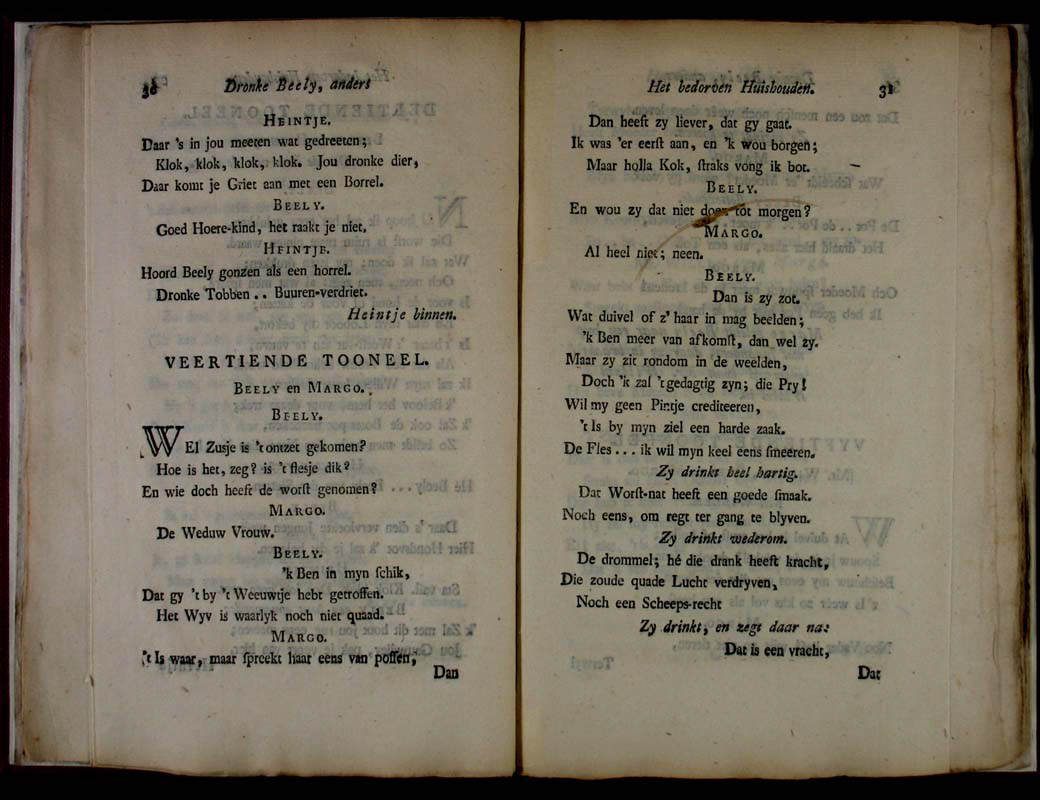 30 Dronke Beely, anders
HEINTJE.
Daar 's in jou meeten wat gedreeten;
Klok, klok, klok, klok. Jou dronke dier,
Daar komt je Griet aan met een Borrel.
BEELY.
Goed Hoere-kind, het raakt je niet.
HEINTJE.
Hoord Beely gonzen als een horrel.
Dronke Tobben .. Buuren-verdriet.
Heintje binnen.
VEERTIENDE TOONEEL.
BEELY en MARGO.
BEELY.
WEl Zusje is 't ontzet gekomen?
Hoe is het, zeg? is 't flesje dik?
En wie doch heeft de worſt genomen?
MARGO.
De Weduw Vrouw.
BEELY.
'k Ben in myn ſchik,
Dat gy 't by 't Weeuwtje hebt getroffen.
Het Wyv is waarlyk noch niet quaad.
MARGO.
't Is waar, maar ſpreekt haar eens van poffen,
Dan
Het bedorven Huishouden. 31
Dan heeft zy liever, dat gy gaat.
Ik was 'er eerſt aan, en 'k wou borgen;
Maar holla Kok, ſtraks vong ik bot.
BEELY.
En wou zy dat niet doen tot morgen?
MARGO.
Al heel niet; neen.
BEELY.
Dan is zy zot.
Wat duivel of z' haar in mag beelden;
'k Ben meer van afkomſt, dan wel zy.
Maar zy zit rondom in de weelden,
Doch 'k zal 't gedagtig zyn; die Pry!
Wil my geen Pintje crediteeren,
't Is by myn ziel een harde zaak.
De Fles ... ik wil myn keel eens ſmeeren.
Zy drinkt heel hartig.
Dat Worſt-nat heeft een goede ſmaak.
Noch eens, om regt ter gang te blyven.
Zy drinkt wederom.
De drommel; hé die drank heeft kracht,
Die zoude quade Lucht verdryven,
Noch een Scheeps-recht
Zy drinkt, en zegt daar na:
Dat is een vracht,
Dat